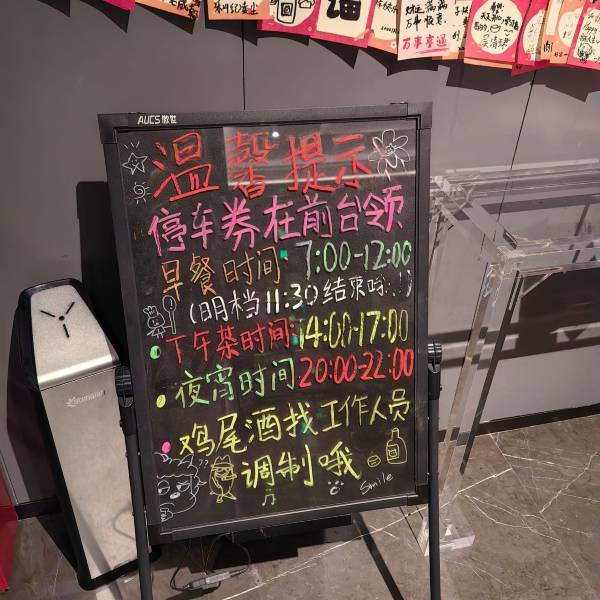 万事亨通
AUCS 傲世
温馨提示
停车券在前台领
早餐时间: 7:00-12:00
(明档11:30结束哦!!)
下午茶时间: 14:00-17:00
夜宵时间 20:00-22:00
鸡尾酒找工作人员
调制哦
Smile